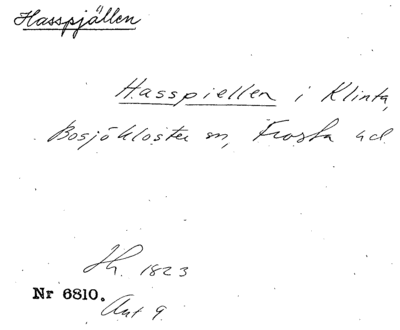 Hasspjällen
Hasspiellen i Klinta,
Bosjökloster sn, Frosta hd
Jh. 1823
Nr 6810.
Avt 9